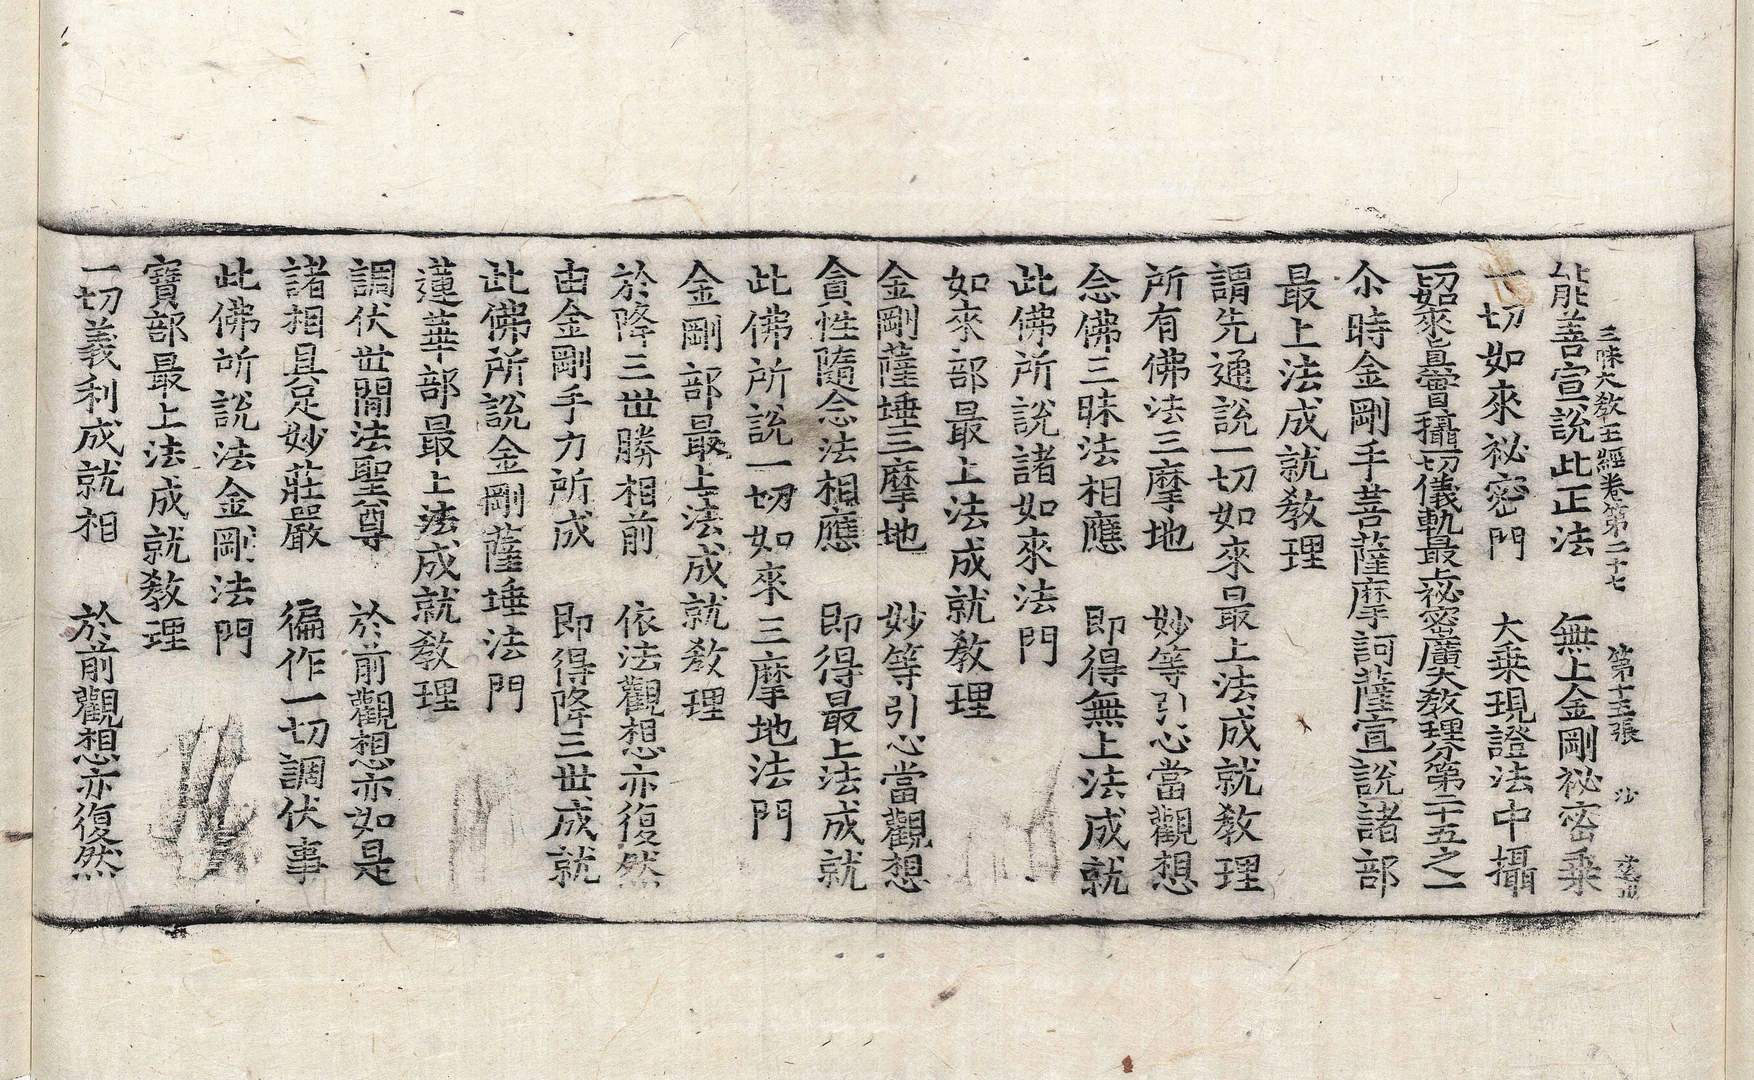 三昧大敎王經卷第二十七 第十五張 沙
能善宣說此正法 無上金剛祕密乘
一切如來祕密門 大乘現證法中攝
一切如來眞實攝一切儀軌最上祕密廣大敎理分第二十五之一
尒時金剛手菩薩摩訶薩宣說諸部
最上法成就敎理
謂先通說一切如來最上法成就敎理
所有佛法三摩地 妙等引心當觀想
念佛三昧法相應 即得無上法成就
此佛所說諸如來法門
如來部最上法成就敎理
金剛薩埵三摩地 妙等引心當觀想
貪性隨念法相應 即得最上法成就
此佛所說一切如來三摩地法門
金剛部最上法成就敎理
於降三世勝相前 依法觀想亦復然
由金剛手力所成 即得降三世成就
此佛所說金剛薩埵法門
蓮華部最上法成就敎理
調伏世間法聖尊 於前觀想亦如是
諸相具足妙莊嚴 徧作一切調伏事
此佛所說法金剛法門
寶部最上法成就敎理
一切義利成就相 於前觀想亦復然